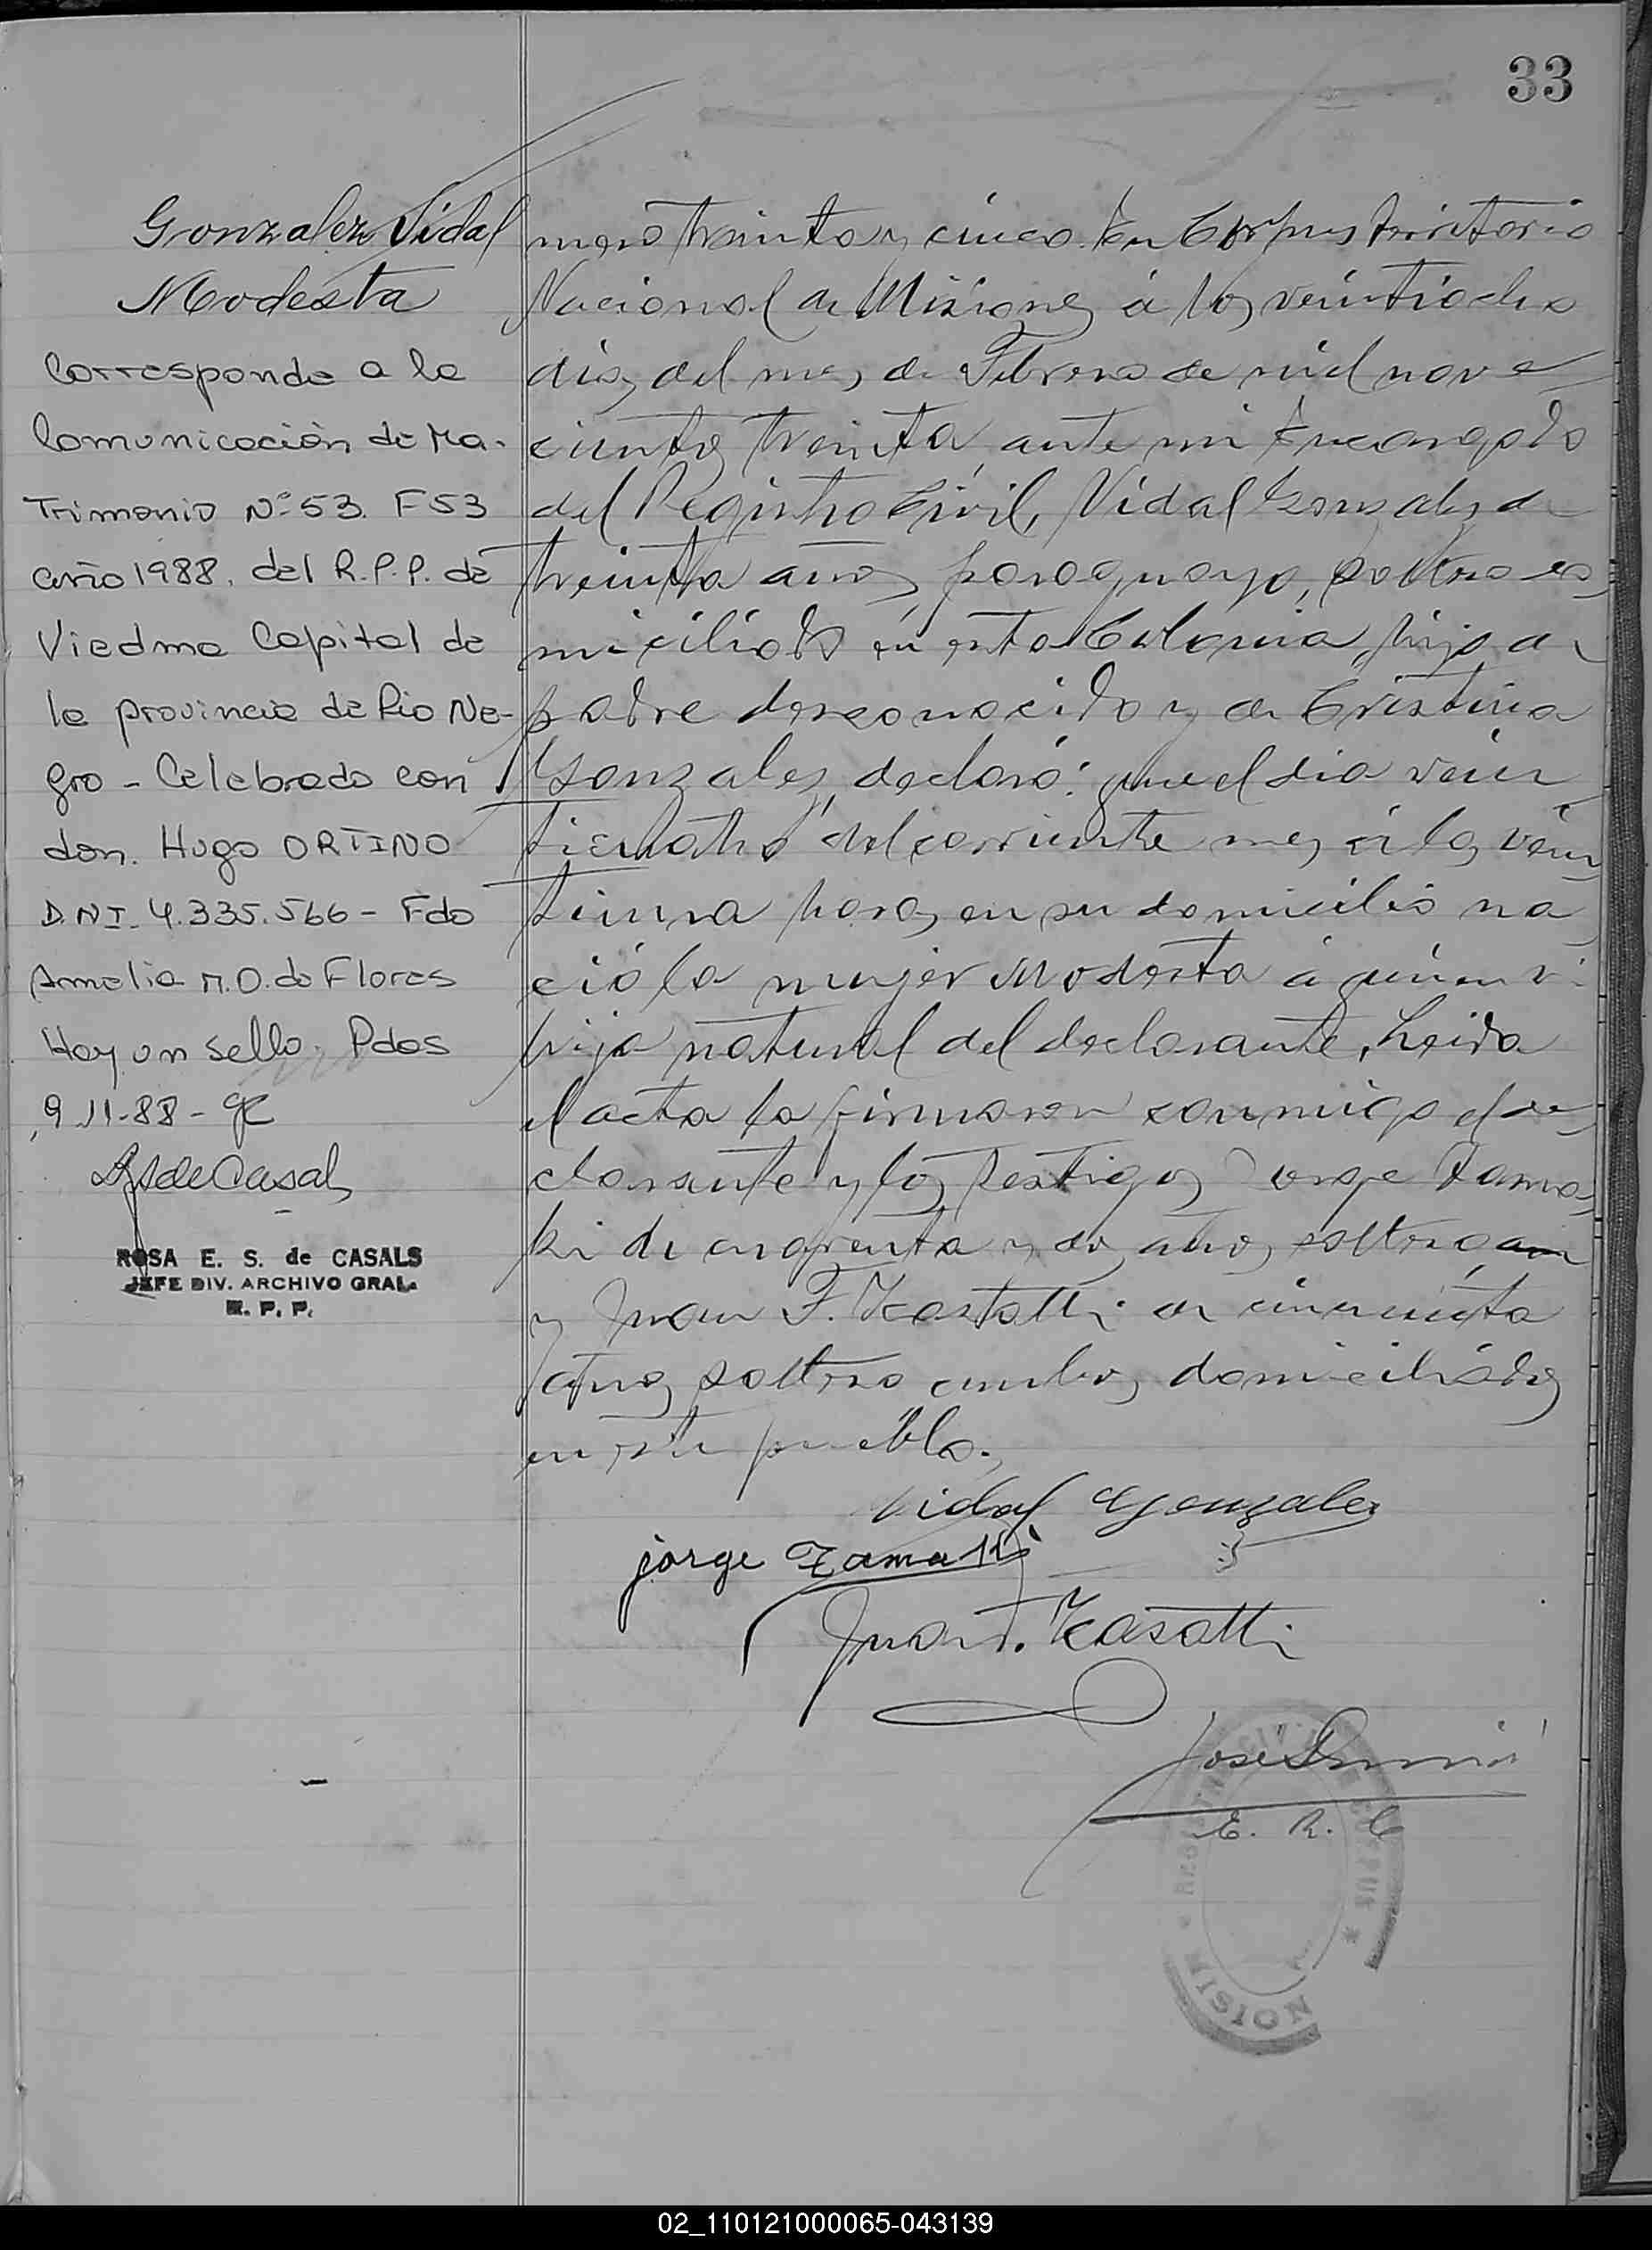 33
Gonzalez Vidal
Modesta
Corresponde a la
Comunicación de Ma-
Trimonio Nº 53. F 53
año 1988. del R.P.P. de
Viedma Capital de
la provincia de Rio Ne-
gro - Celebrado con
don. Hugo ORTINO
D.N.I. 4.335.566 - Fdo
Amelia M.O. de Flores
Hay un sello. Pdas
9-11-88-
ROSA E. S. de CASALS
JEFE DIV. ARCHIVO GRAL.
R. P. P.
mero treinta y cinco. En Corpus Territorio
Nacional de Misiones á los veintiocho
dias del mes de Febrero de mil nove
cientos treinta, ante mi Encargado
del Registro Civil, Vidal Gonzalez de
treinta años, paraguayo, soltero do
miciliado en esta Colonia, hijo de
padre desconocido y de Cristina
Gonzales, declaró: que el dia vein
ticuatro del corriente mes á las vein
tiuna horas en su domicilio na
ció la mujer Modesta á quien vi
hija natural del declarante. Leida
el acta la firmaron conmigo el de
clarante y los testigos Jorge Zama
ki de cuarenta y dos años, soltero
y Juan F. Kasatti de cincuenta
años, soltero ambos domiciliados
en este pueblo.
Vidal Gonzalez
jorge Zamaki
Juan F. Kasatti
José
E. R. C
REGISTRO CIVIL DE CORPUS * MISIONES *
02_110121000065-043139